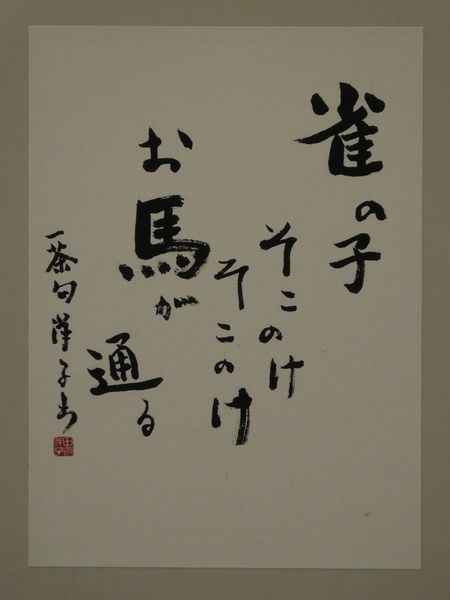 雀の子
そこのけ
そこのけ
お馬が
通る
一茶句 洋子書